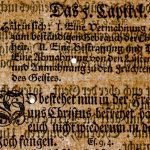 Das 5. Capitel.
I. Eine Vermahnung
zum beständigen Gebrauch der
II. Eine Bestraffung und
Eine Abmahnung von den Lüsten
und Anmahnung zu den Früchten
des Geistes.
So bestehet nun in der Frey
uns Christus befreyet ha
euch nicht wiederum in d
Joch fangen.